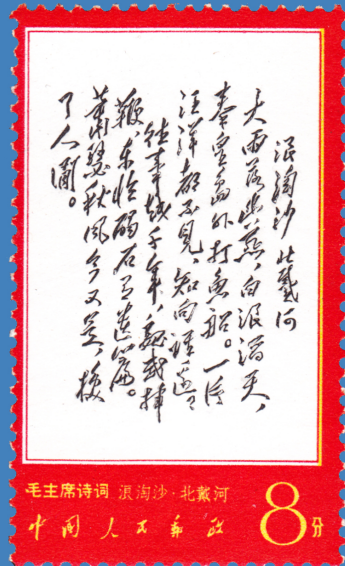 浪淘沙 北戴河
大雨落幽燕,白浪滔天,
秦皇島外打魚船。一片
汪洋都不见,知向谁边?
往事越千年,魏武挥
鞭,东临碣石有遗篇。
萧瑟秋风今又是,换
了人间。
毛主席诗词 浪淘沙·北戴河
中国人民邮政 8分